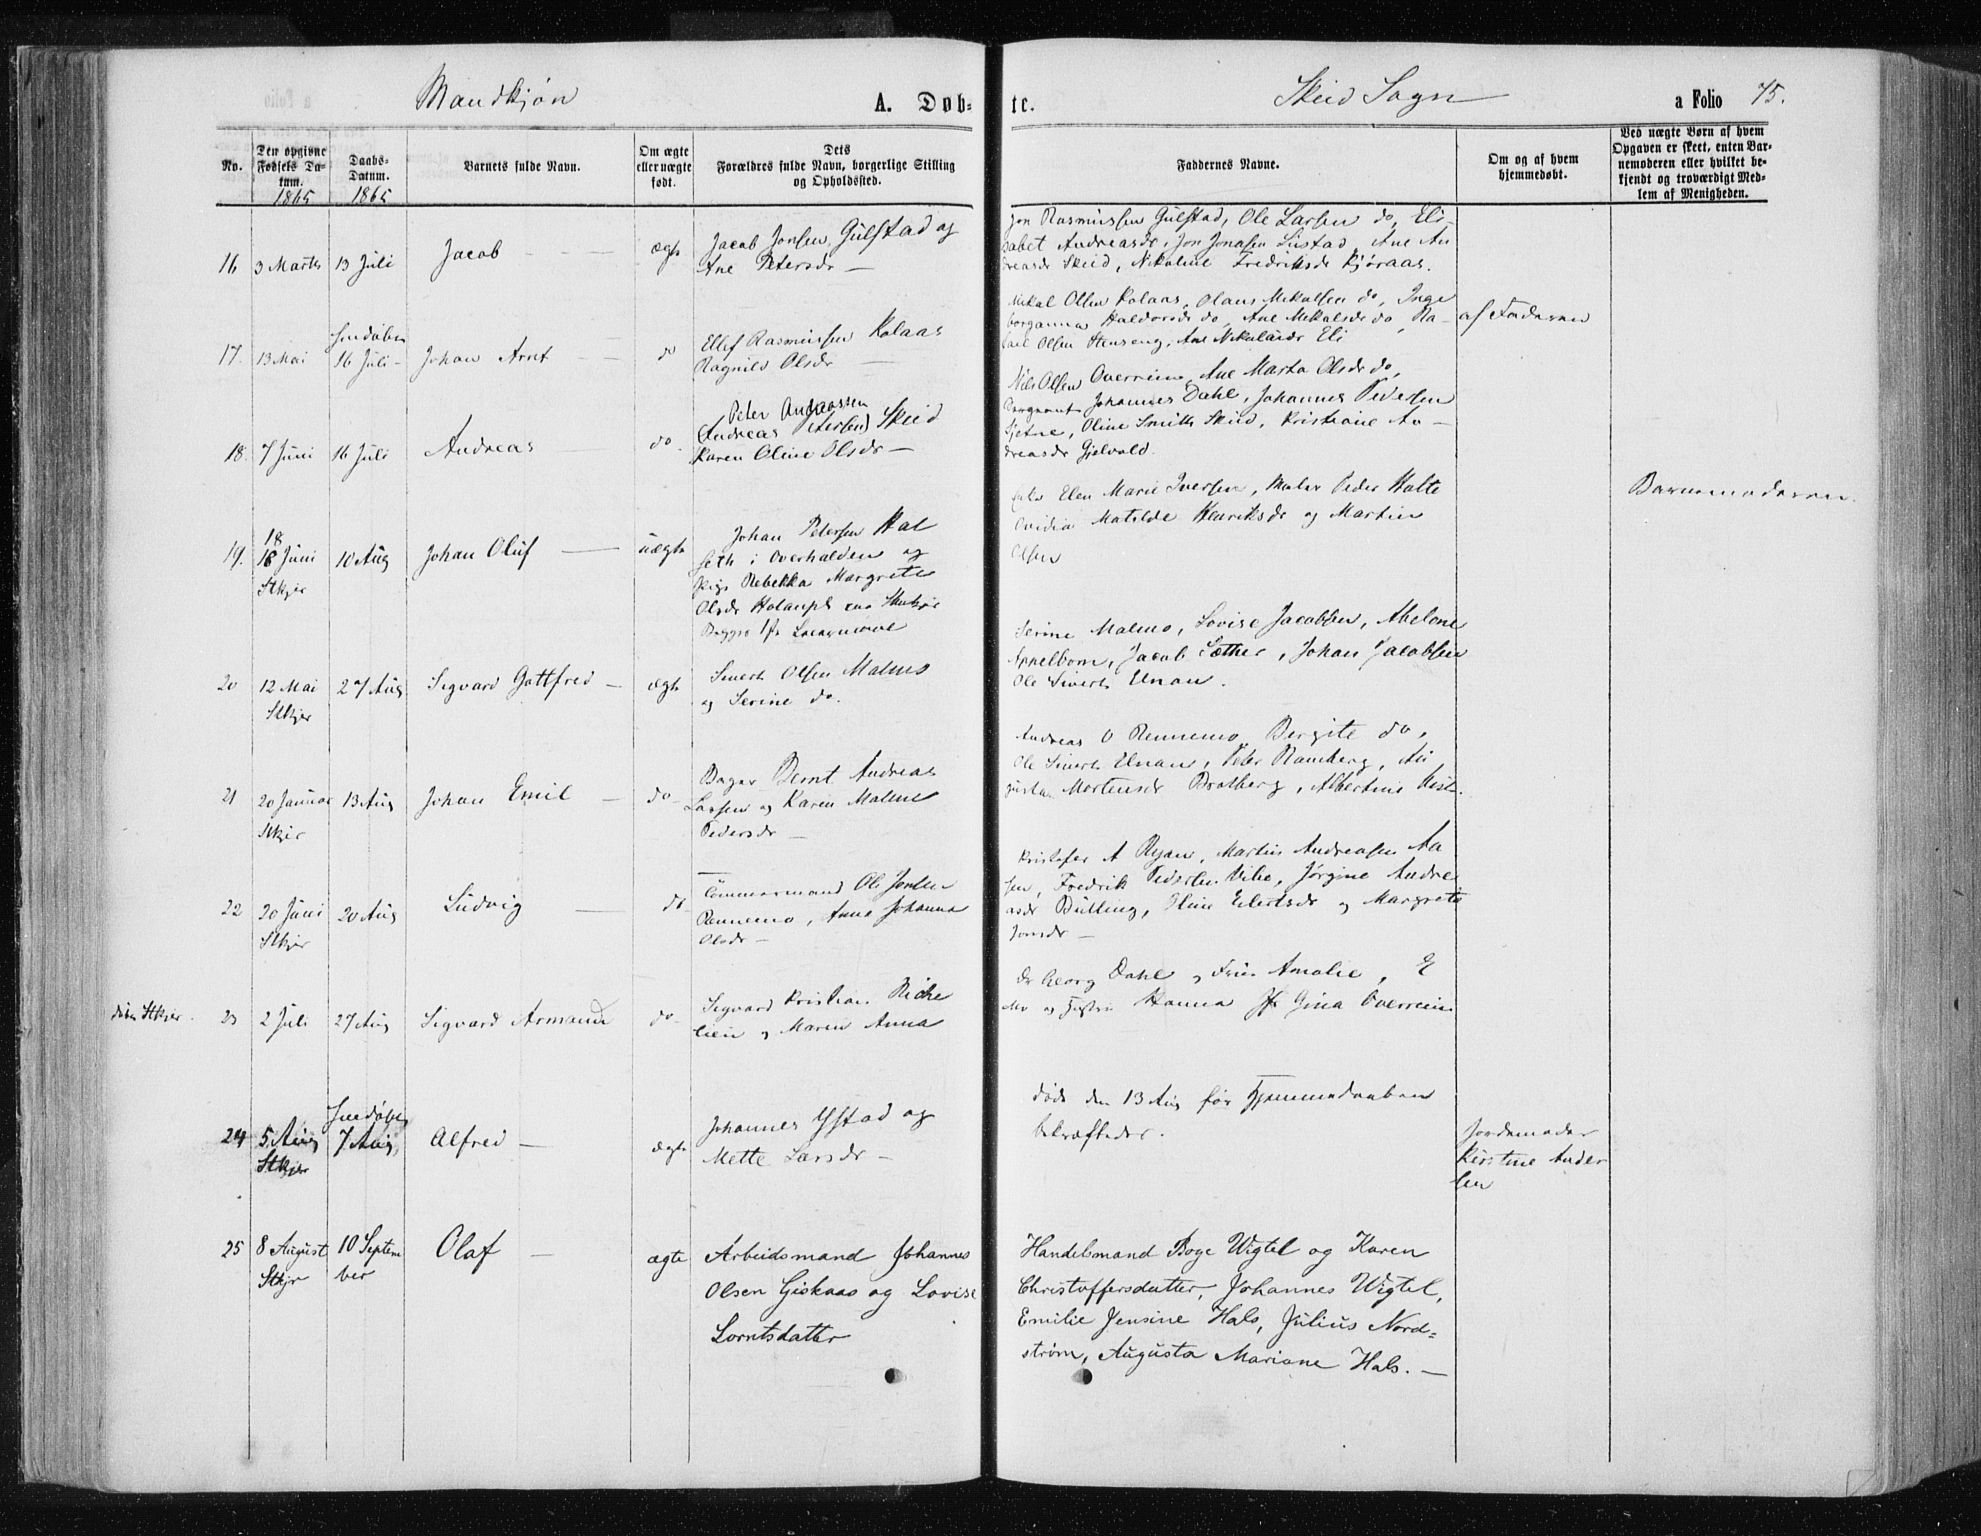 Mandkjøn
A. Døb-
te.
Skeid Sogn
a Folio 75.
No.
Den opgivne Fødsels Datum.
1865
Daabs-Datum.
1865
Barnets fulde Navn.
Om ægte eller uægte født.
Dets Forældres fulde Navn, borgerlige Stilling og Opholdssted.
Faddernes Navne.
Om og af hvem hjemmedøbt.
Ved uægte Børn af hvem Opgaven er skeet, enten Barnemoderen eller hvilket bekjendt og troværdigt Medlem af Menigheden.
16 3 Marts 13 Juli Jacob ægte
Jacob Jonsen Gulstad og
Ane Petersdr
Jon Rasmussen Gulstad, Ole Larsen do, Eli-
sabet Andreasdr, Jon Jonasen Sustad, Ane An
dreasdr Skeid, Nikoline Fredriksdr Kjøraas.
17. 13 Mai 16 Juli Johan Arnt do
Ellef Rasmussen Kolaas
Ragnild Olsdr
Mikal Olsen Kolaas, Olaus Mikalsen do, Inge
borganna Haldorsdr do, Ane Mikalsdr do, Ra-
Olsen Stenseng, Ane Nikolaidr Eli
af Faderen
18. 7 Juni 16 Juli Andreas do.
Peter Andreassen
(Andreas Petersen) Skeid
Karen Oline Olsdr
Nils Olsen Overrein, Ane Marta Olsdr do,
Johannes Dahl, Johannes Pedersen
Oline Smith Skeid, Kristiane An-
dreasdr Gjelvold.
19. 18 Juni 10 Aug Johan Oluf uægte
Stkjer
Johan Petersen Hal
seth i Overhalden og
Pige Rebekka Margrete
Olsdr
Elen Marie Iversen, Maler Peder Holte
Ovidia Matilde Henriksdr og Martin
Olsen
Barnemoderen.
20 12 Mai 27 Aug Sigvard Gottfred ægte
Stkjer
Sivert Olsen Malmo
og Serine do.
Serine Malmo, Lovise Jacobsen, Abelone
Appelbom, Jacob Sæther, Johan Jacobsen
Ole Siverts Unan.
21 20 Januar 13 Aug Johan Emil do
Stkjer
Bager Bernt Andreas
Larsen og Karen Malene
Pedersdr
Andreas O Rennemo, Bergite do,
Ole Siverts Unan, Peter Ramberg, Au
gusta Mortensdr Bratberg, Albertine
22 20 Juni 20 Aug Ludvig do
Stkjer
Tømmermand Ole Jonsen
Rennemo, Anne Johanna
Olsdr
Kristofer A Ryan, Martin Andreasen Aa
sen, Fredrik Pedersen Vibe, Jørgine Andre
asdr Bulling, Oline Eilertsdr og Margrete
Jonsdr
Stkjer. 23 2 Juli 27 Aug Sigvard Armand do
Sigvard Kristian Riche
lieu og Maren Anna
Dr Georg Dahl og Frue Amalie, E
Mo og Hanna Jfr Gina Overrein
24 5 Aug 7 Aug Alfred ægte
Stkjer
Johannes Ystad og
Mette Larsdr
døde den 13 Aug før Hjemmedaaben
bekræftedes.
Jordemoder
Kirstine Ander
sen
25 8 August 10 Septem Olaf ægte
Stkjr ber
Arbeidsmand Johannes
Olsen Giskaas og Lovise
Lorntsdatter
Handelsmand Boye Wigtel og Karen
Christoffersdatter, Johannes Wigtel,
Emilie Jensine Hals, Julius Nord=
strøm, Augusta Mariane Hals.